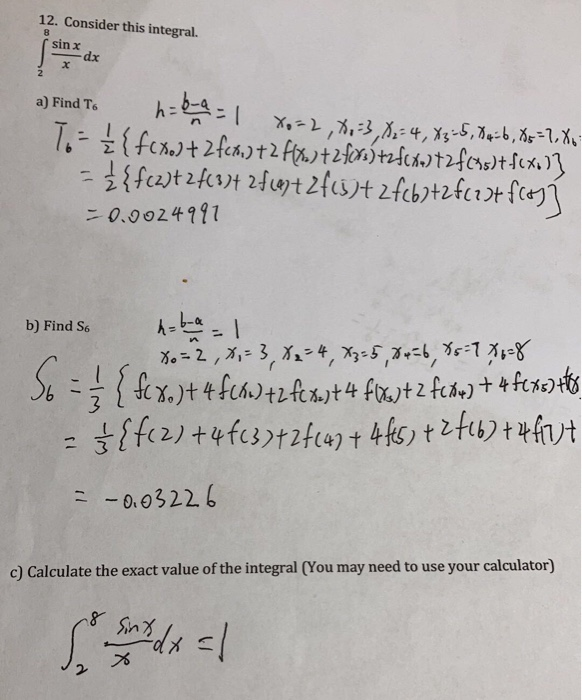 12. Consider this integral.
∫₂⁸ sin x / x dx
a) Find T₆
h = b-a / n = 1
x₀=2, x₁=3, x₂=4, x₃=5, x₄=6, x₅=7, x₆
T₆ = 1/2 {f(x₀)+2f(x₁)+2f(x₂)+2f(x₃)+2f(x₄)+2f(x₅)+f(x₆)}
= 1/2 {f(2)+2f(3)+2f(4)+2f(5)+2f(6)+2f(7)+f(8)}
= 0.0024991
b) Find S₆
h = b-a / n = 1
x₀=2, x₁=3, x₂=4, x₃=5, x₄=6, x₅=7 x₆=8
S₆ = 1/3 {f(x₀)+4f(x₁)+2f(x₂)+4f(x₃)+2f(x₄)+4f(x₅)+f(x
= 1/3 {f(2)+4f(3)+2f(4)+4f(5)+2f(6)+4f(7)+
= -0.03226
c) Calculate the exact value of the integral (You may need to use your calculator)
∫₂⁸ sinx / x dx = 1